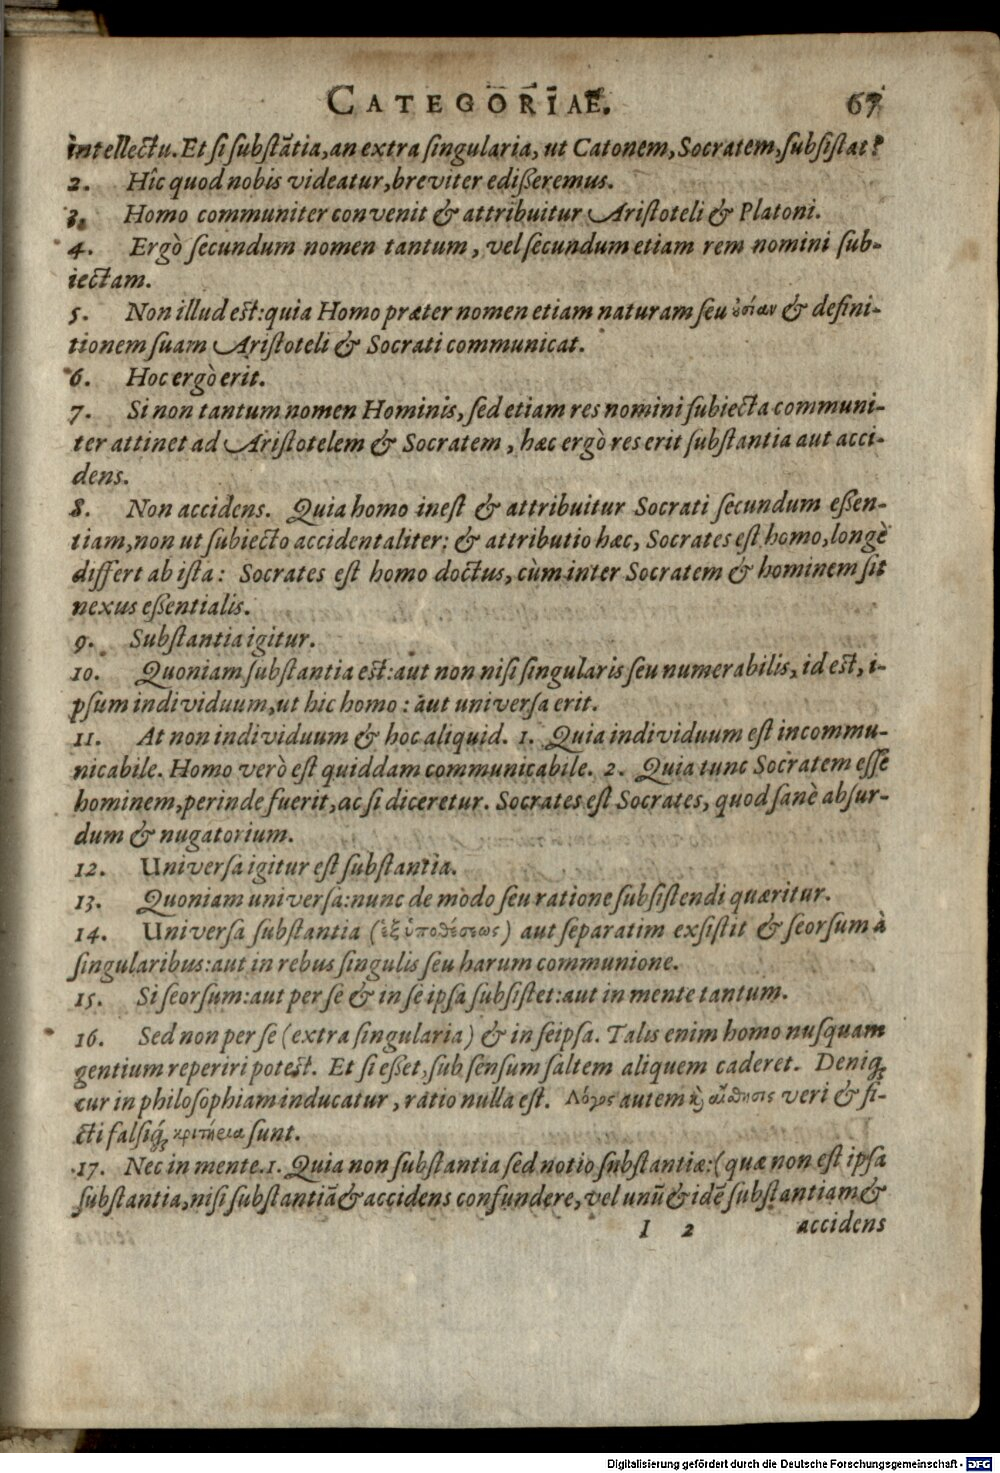 CATEGORIAE. 67
intellectu. Et si substãtia, an extra singularia, ut Catonem, Socratem, subsistat?
2. Hîc quod nobis videatur, breviter edißeremus.
3. Homo communiter convenit & attribuitur Aristoteli & Platoni.
4. Ergò secundum nomen tantum, vel secundum etiam rem nomini sub-
iectam.
5. Non illud est: quia Homo præter nomen etiam naturam seu ὀσίαν & defini-
tionem suam Aristoteli & Socrati communicat.
6. Hoc ergò erit.
7. Si non tantum nomen Hominis, sed etiam res nomini subiecta communi-
ter attinet ad Aristotelem & Socratem, hæc ergò res erit substantia aut acci-
dens.
8. Non accidens. Quia homo inest & attribuitur Socrati secundum eßen-
tiam, non ut subiecto accidentaliter: & attributio hæc, Socrates est homo, longè
differt ab ista: Socrates est homo doctus, cùm inter Socratem & hominem sit
nexus eßentialis.
9. Substantia igitur.
10. Quoniam substantia est: aut non nisi singularis seu numerabilis, id est, i-
psum individuum, ut hic homo: aut universa erit.
11. At non individuum & hoc aliquid. 1. Quia individuum est incommu-
nicabile. Homo verò est quiddam communicabile. 2. Quia tunc Socratem esse
hominem, perinde fuerit, ac si diceretur. Socrates est Socrates, quod sanè absur-
dum & nugatorium.
12. Universa igitur est substantia.
13. Quoniam universa: nunc de modo seu ratione subsistendi quæritur.
14. Universa substantia (ἐξ ὑποθέσεως) aut separatim exsistit & seorsum à
singularibus: aut in rebus singulis seu harum communione.
15. Si seorsum: aut per se & in se ipsa subsistet: aut in mente tantum.
16. Sed non per se (extra singularia) & in seipsa. Talis enim homo nusquam
gentium reperiri potest. Et si eßet, sub sensum saltem aliquem caderet. Deniq;
cur in philosophiam inducatur, ratio nulla est. Λόγος autem ϗ̀ αἴσθησις veri & fi-
cti falsiq; κριτήεια sunt.
17. Nec in mente. 1. Quia non substantia sed notio substantiæ: (quæ non est ipsa
substantia, nisi substantiã & accidens confundere, vel unũ & idẽ substantiam &
I 2 accidens
Digitalisierung gefördert durch die Deutsche Forschungsgemeinschaft - DFG